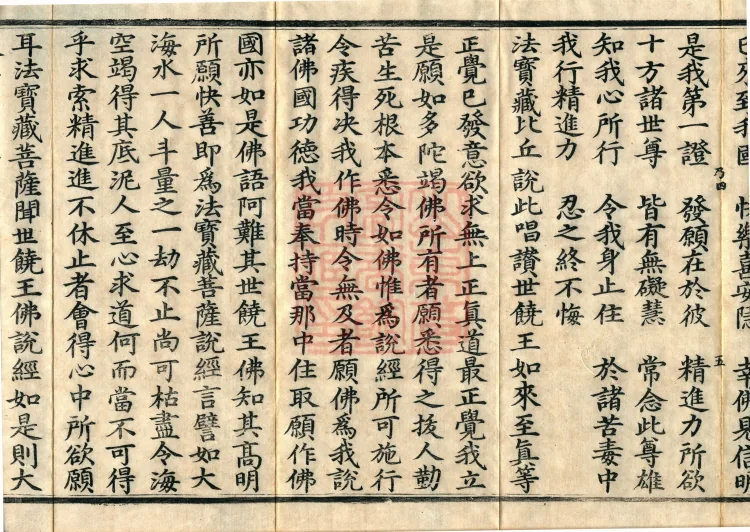 至我國 快樂喜安隱 幸佛見信明
乃四 五
是我第一證 發願在於彼 精進力所欲
十方諸世尊 皆有無礙慧 常念此尊雄
知我心所行 令我身止住 於諸苦毒中
我行精進力 忍之終不悔
法寶藏比丘說此唱讃世饒王如來至眞等
正覺已發意欲求無上正眞道最正覺我立
是願如多陀竭佛所有者願悉得之拔人勤
苦生死根本悉令如佛惟爲說經所可施行
令疾得决我作佛時令無及者願佛爲我說
諸佛國功德我當奉持當那中住取願作佛
國亦如是佛語阿難其世饒王佛知其髙明
所願快善即爲法寶藏菩薩說經言譬如大
海水一人斗量之一劫不止尚可枯盡令海
空竭得其底泥人至心求道何而當不可得
乎求索精進進不休止者會得心中所欲願
耳法寶藏菩薩聞世饒王佛說經如是則大